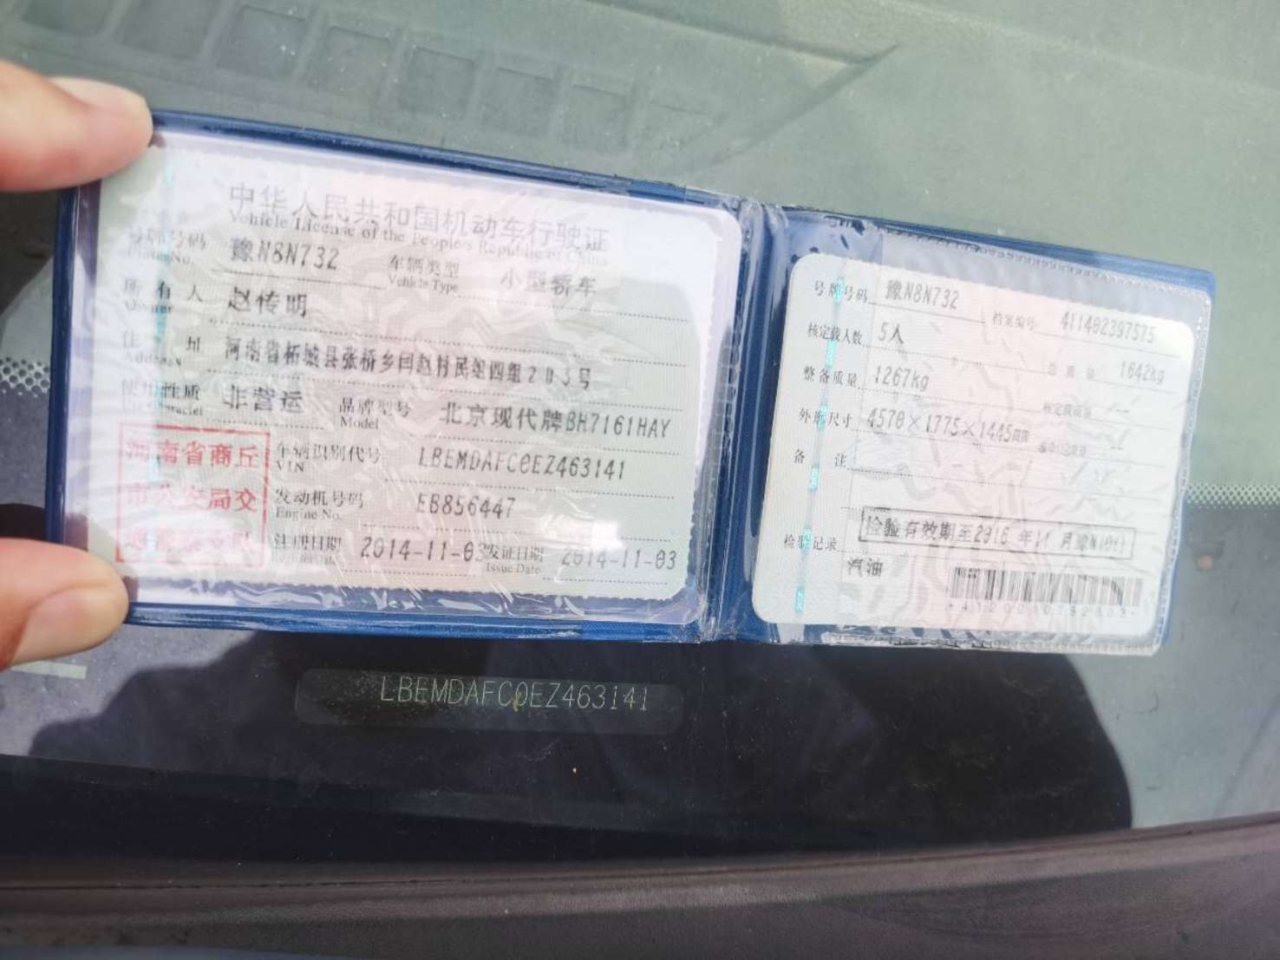 中华人民共和国机动车行驶证
Vehicle License of the People's Republic of China
号牌号码 豫N8N732 车辆类型 小型轿车
Plate No. Vehicle Type
所有人 赵传明
Owner
住址 河南省柘城县张桥乡闫赵村民组四组203号
Address
使用性质 非营运 品牌型号 北京现代牌BH7161HAY
Model
河南省商丘
市公安局交
车辆识别代号 LBEMDAFC0EZ463141
VIN
发动机号码 EB856447
Engine No.
注册日期 2014-11-03 发证日期 2014-11-03
Issue Date
号牌号码 豫N8N732 档案编号 411402397575
核定载人数 5人 总质量 1642kg
整备质量 1267kg 核定载质量 --
外廓尺寸 4570×1775×1445mm
备注
检验记录 检验有效期至2016年11月豫N(01)
汽油
LBEMDAFC0EZ463141